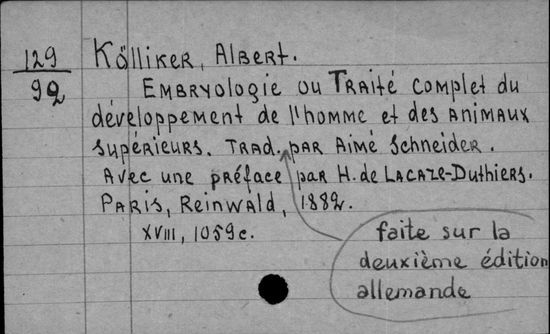 129
92
Kölliker, Albert.
Embryologie ou Traité complet du
développement de l'homme et des animaux
supérieurs. Trad. par Aimé Schneider.
Avec une préface par H. de Lacaze-Duthiers.
Paris, Reinwald, 1882.
XVIII, 1059c.
faite sur la
deuxième édition
allemande